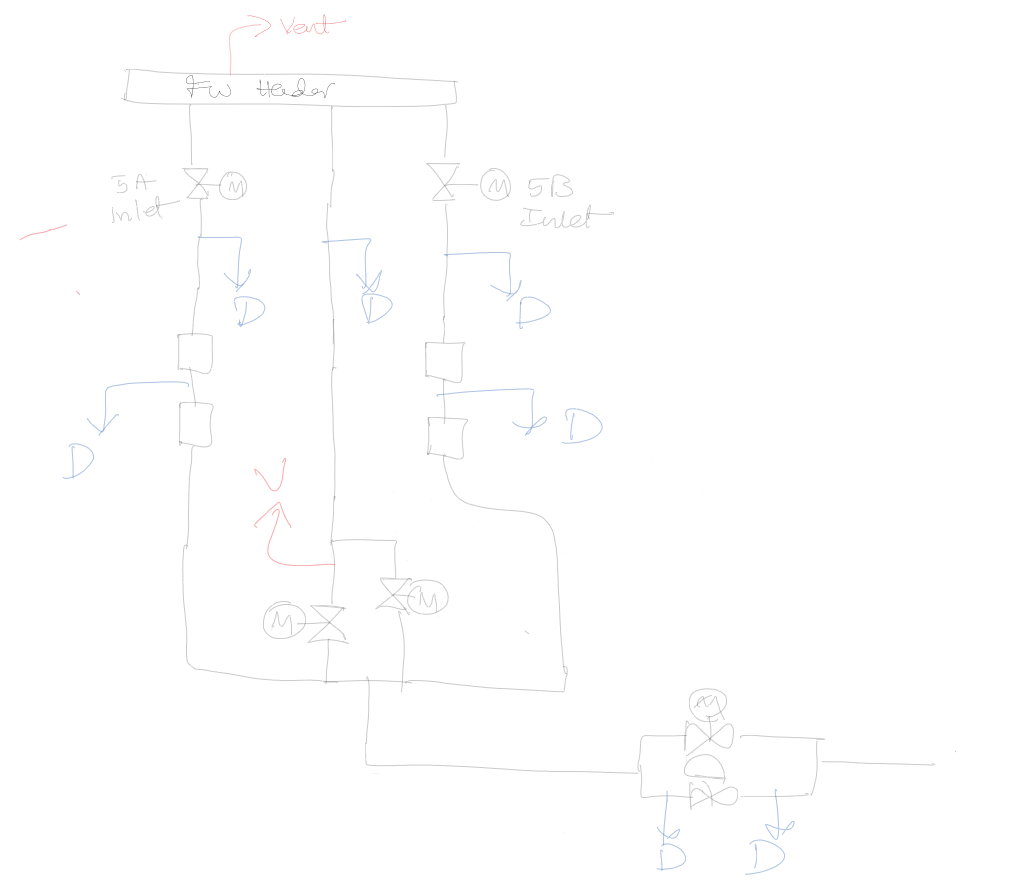 Vent
FW Header
5A
Inlet
M
M
5B
Inlet
D
D
D
D
D
V
M
M
M
D
D